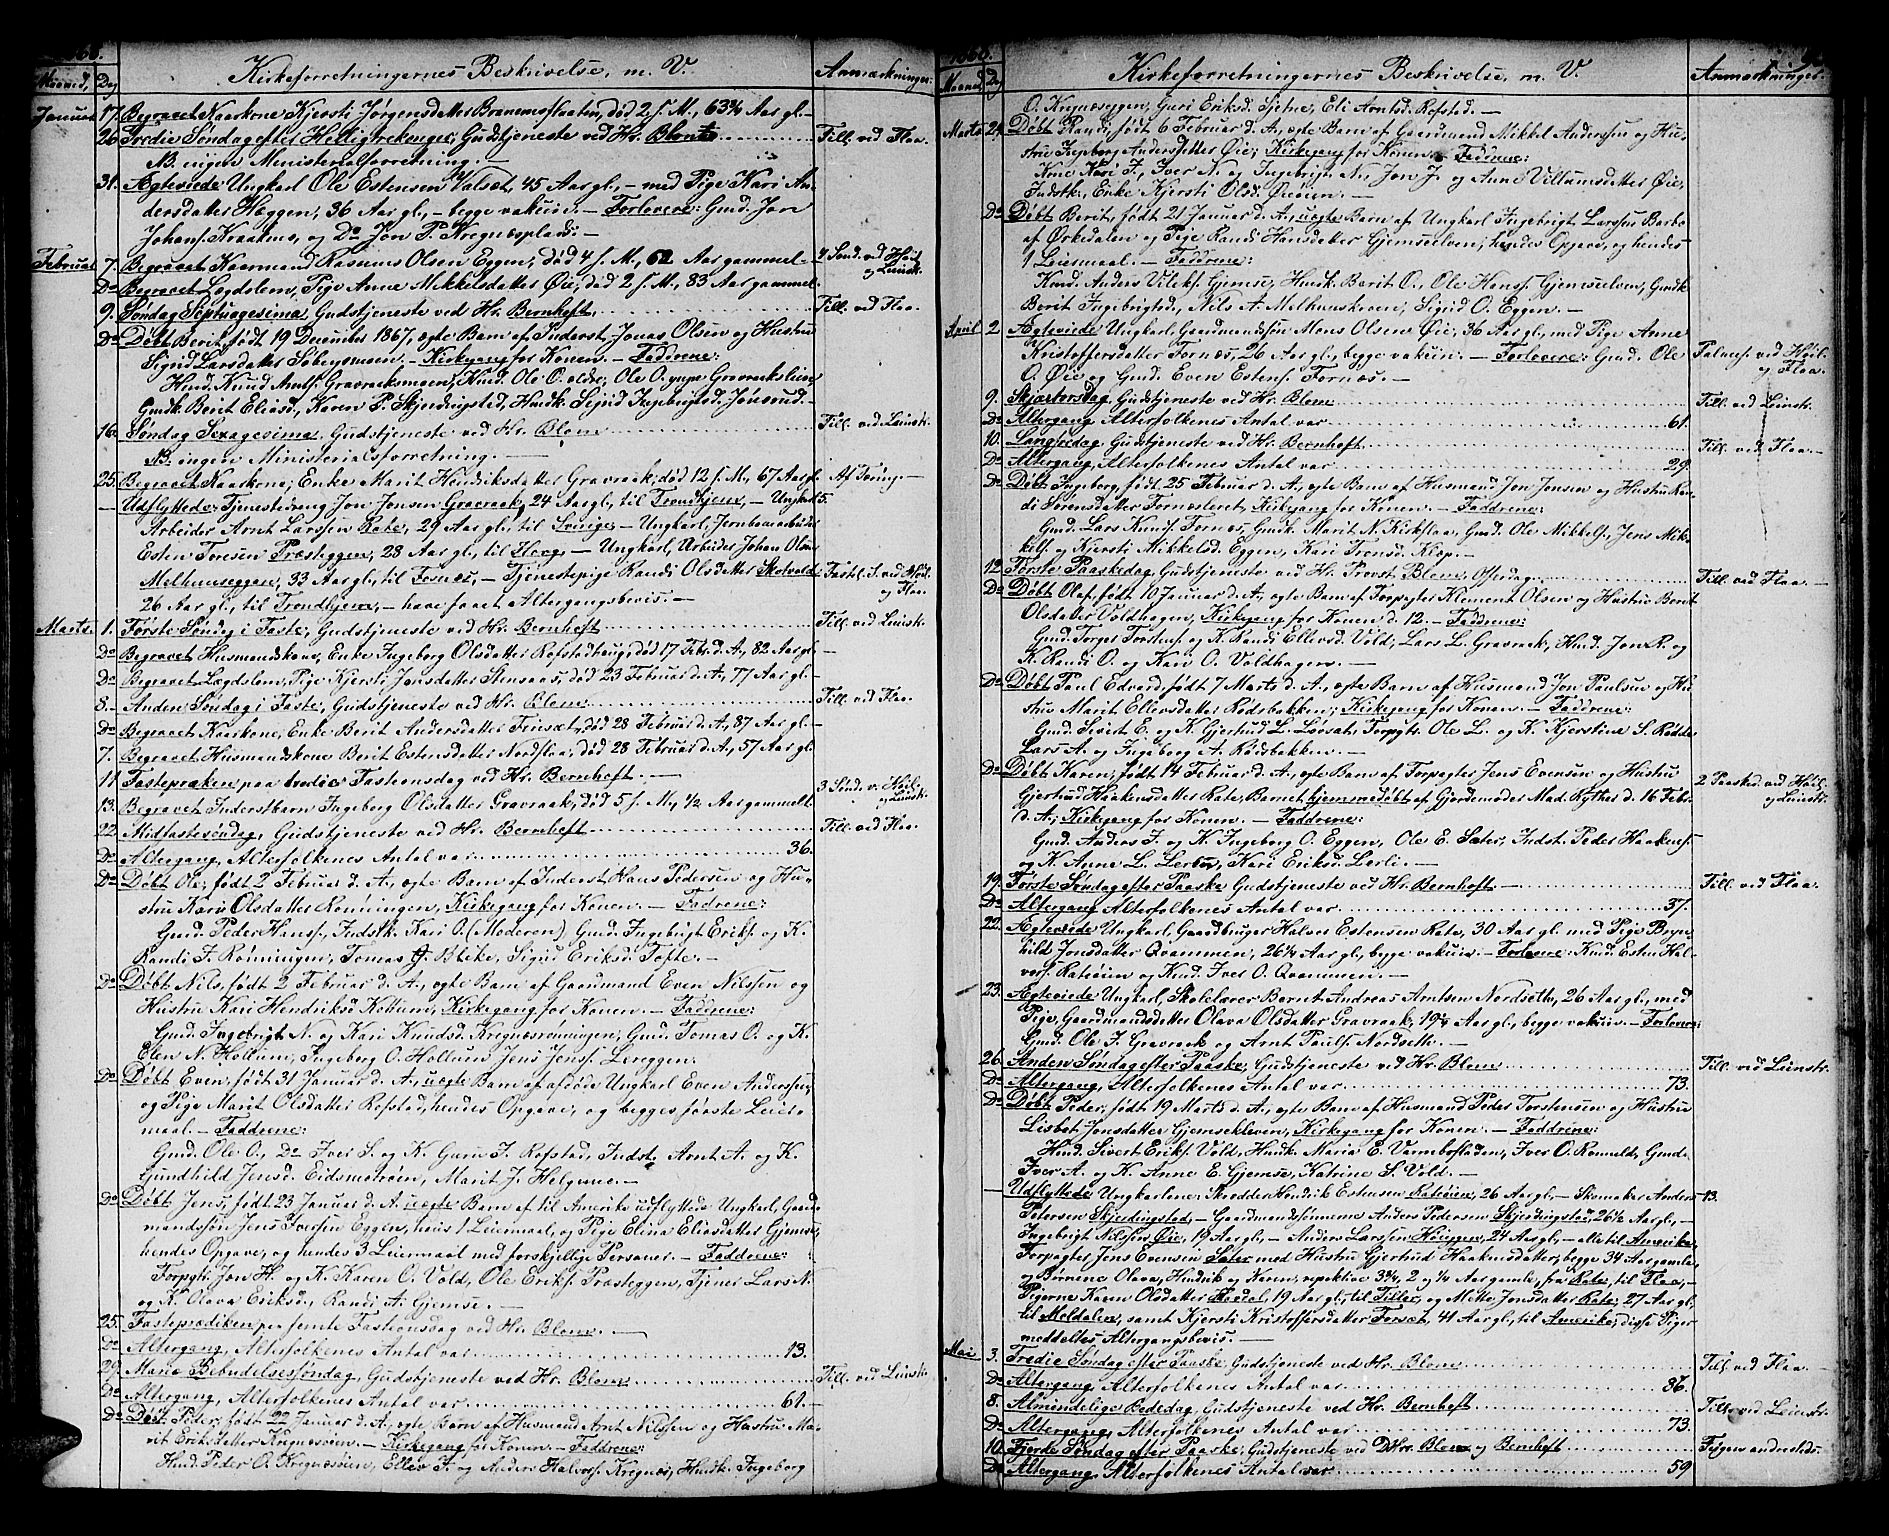 1868.
Maaned, Dag
Kirkeforretningernes Beskrivelse, m. V.
Anmærkninger.
Januar 17. Begravet Kaarkone Kjersti Jørgensdatter Brænemsstraaten, død 2 f. M., 63¾ Aar gl.—
26 Tredie Søndag efter Helligtrekonger, Gudstjeneste ved Hr. Blom Till. ved Flaa.
NB. ingen Ministerialforretning. —
31. Ægteviede: Ungkarl Ole Estensen Valsæt, 45 Aar gl., — med Pige Kari An-
dersdatter Hæggen, 36 Aar gl., — begge vakuin. — Forlovere: Gmd. Jon
Johans. Kraakmo, og Do Jon P. Kregnæsplads: —
Februar 7. Begravet Kaarmand Rasmus Olsen Eggen, død 4 f. M., 62 Aar gammel — 4 Sønd. ved Høil. og Leinst.
Do Begravet Lægdslem, Pige Anne Mikkelsdatter Øie, død 2 f. M., 83 Aar gammel
9. Søndag Septuagesima, Gudstjeneste ved Hr. Bernhoft. Till. ved Flaa.
Do Døbt Berit, født 19 December 1867, ægte Barn af Inderst. Jonas Olsen og Hustru
Sigrid Larsdatter Søbergsmoen. — Kirkegang for Konen. — Faddrene:
Husd. Knud Arnts. Gravraaksmoen, Husd. Ole O. ældre, Ole O. yngre Gravrakslien
Gmdk. Berit Eliasd., Karen P. Skjerdingstad, Husdk. Sigrid Ingebrigtsd. Jonsrud.
16. Søndag Sexagesima, Gudstjeneste ved Hr. Blom Till. ved Leinst.
NB. ingen Ministerialforretning. —
25. Begravet Kaarkone, Enke Marit Hendriksdatter Gravraak, død 12 f. M., 67 Aar gl. Af Tæring. —
— Udflyttede: Tjenestedreng Jon Jonsen Gravraak, 24 Aar gl., til Trondhjem, — Ungkarl 5
Arbeider Arnt Larssen Rate, 29 Aar gl., til Sverige, — Ungkarl, Jernbanearbeider
Esten Toresen Præsteggen, 28 Aar gl., til Horg, — Ungkarl, Arbeider Johan Olsen
Melhuuseggen, 33 Aar gl., til Fornæs, — Tjenestepige Randi Olsdatter Skotvold Fastel. S. ved Høil. og Flaa.
26 Aar gl., til Trondhjem, — have faaet Altergangsbevis. —
Marts. 1. Første Søndag i Faste, Gudstjeneste ved Hr. Bernhoft Till. ved Leinst.
Do Begravet Husmandskone, Enke Ingeborg Olsdatter Rofstadhaug, død 17 Febr. d. A., 82 Aar gl. —
Do Begravet Lægdslem, Pige Kjersti Jonsdatter Stensaas, død 23 Februar d. A., 77 Aar gl. —
8. Anden Søndag i Faste, Gudstjeneste ved Hr. Blom Till. ved Flaa.
Do Begravet Kaarkone, Enke Berit Andersdatter Teinsæt, død 28 Februar d. A., 87 Aar gl. —
7. Begravet Husmandskone Berit Estensdatter Nordflaa, død 28 Februar d. A., 57 Aar gl.
11. Fastepræken paa tredie Fastonsdag ved Hr. Bernhoft. — 3. Sønd. v. Høil. og Leinst.
13. Begravet Inderstbarn Ingeborg Olsdatter Gravraak, død 5 f. M., ½ Aar gammelt
22. Midfastesøndag, Gudstjeneste ved Hr. Bernhoft Till. ved Flaa.
Do Altergang, Alterfolkenes Antal var 36.
Do Døbt Ole, født 2 Februar d. A., ægte Barn af Inderst Hans Pedersen og Hu-
stru Kari Olsdatter Rønningen, Kirkegang for Konen. — Faddrene:
Gmd. Peder Hans., Indstk. Kari O. (Moderen) Gmd. Ingebrigt Eriks. og K.
Randi J. Rønningen, Tomas J. Bleke, Sigrid Eriksd. Tofte. —
Do Døbt Nils, født 2 Februar d. A., ægte Barn af Gaardmand Even Nilssen og
Hustru Kari Hendriksd. Kobuen, Kirkegang for Konen. — Faddrene:
Gmd. Ingebrigt N. og Kari Knudsd. Kregnæsrønningen, Gmd. Tomas O. og K.
Elen N. Hollum, Ingeborg O. Hollum Jens Jens. Lereggen.
Do Døbt Even, født 31 Januar d. A., uægte Barn af afdøde Ungkarl Even Anderssen,
og Pige Marit Olsdatter Rofstad, hendes Opgave, og begges første Leier-
maal. — Faddrene:
Gmd. Ole O., Do Iver S. og K. Guru J. Rofstad, Indst. Arnt A. og K.
Gundhild Jensd. Eidsmstrøen, Marit J. Helgemo. —
Do Døbt Jens, født 23 Januar d. A. uægte Barn af til Amerika udflyttede Ungkarl, Gaard-
mandssøn Jens Iversen Eggen, hans 1 Leiermaal, og Pige Elina Eliasdatter Gjemse,
hendes Opgave, og hendes 3 Leiermaal med forskjellige Personer. — Faddrene:
Torpgtr. Jon H. og K. Karen O. Vold, Ole Eriks. Præsteggen, Tjener Lars N.
og K. Olava Eriksd., Randi A. Gjemse. —
25. Fasteprædiken paa femte Fastonsdag ved Hr. Blom. —
Do Altergang, Alterfolkenes Antal var 13.
29. Mariæ Bebudelsessøndag, Gudstjeneste ved Hr. Blom Till. ved Leinst.
Do Altergang, Alterfolkenes Antal var 61. —
Do Døbt Peder, født 22 Januar d. A., ægte Barn af Husmand Arnt Nilssen og Hustru Ma-
rit Eriksdatter Kregnæsøien. — Kirkegang for Konen. — Faddrene:
Husd. Peder O. Kregnæsøien, Ellev I. og Anders Halvors. Kregnæs, Husdk. Ingeborg
1868.
Maaned, Dg
Kirkeforretningernes Beskrivelse, m. V.
Anmærkninger.
O. Kregnæseggen, Guri Eriksd. Sjetne, Eli Arntsd. Rofstad. —
Marts 29. Døbt Randi, født 6 Februar d. A., ægte Barn af Gaardmand Mikkel Anderssen og Hu-
stru Ingeborg Andersdatter Øie, Kirkegang for Konen. — Faddrene:
Kone Kari J., Iver N. og Ingebrigt N., Jon J. og Anne Villumsdatter Øie,
Indstk., Enke Kjersti Olsd. Øieøien. —
Do Døbt Berit, født 21 Januar d. A., uægte Barn af Ungkarl Ingebrigt Larssen Barbo
af Orkedalen og Pige Randi Hansdatter Gjemselven, hendes Opgave, og hendes
1 Leiermaal. — Faddrene:
Husd. Anders Vileks. Gjemse, Husdk. Berit O., Ole Hans. Gjemselven, Gmdk.
Berit Ingebrigtsd., Nils A. Melhusskoven, Sigrid O. Eggen. —
April 2. Ægteviede Ungkarl, Gaardmandssøn Mons Olsen Øie, 36 Aar gl., med Pige Anne
Kristoffersdatter Fornæs, 26 Aar gl., begge vakuin: — Forlovere: Gmd. Ole Palmes. ved Høil.
O. Øie og Gmd. Even Estens. Fornæs. — og Flaa.
9. Skjærtorsdag, Gudstjeneste ved Hr. Blom Till. ved Leinst.
Do Altergang, Alterfolkenes Antal var 61.
10. Langfredag, Gudstjeneste ved Hr. Bernhoft Till. ved Flaa. —
Do Altergang, Alterfolkenes Antal var 29.
Do Døbt Ingeborg, født 25 Februar d. A., ægte Barn af Husmand Jon Jonsen og Hustru Ran-
di Sørensdatter Fornesteret, Kirkegang for Konen. — Faddrene:
Gmd. Lars Knuds. Fornæs, Gmdk. Marit N. Kirkflaa, Gmd. Ole Mikkels., Jens Mik-
kels. og Kjersti Mikkelsd. Eggen, Kari Tronsd. Klep. —
12. Første Paaskedag, Gudstjeneste ved Hr. Provst Blom, Offerdag Till. ved Flaa. —
Do Døbt Olaf, født 10 Januar d. A., ægte Barn af Torpegter Klement Olsen og Hustru Berit
Olsdatter Voldhagen, Kirkegang for Konen d. 12. — Faddrene:
Gmd. Torger Torstens. og K. Randi Ellevsd. Vold, Lars L. Gravraak, Husd. Jon R. og
K. Randi O. og Kari O. Voldhagen. —
Do Døbt Paul Edvard, født 7 Marts d. A., ægte Barn af Husmand Jon Paulsen og Hu-
stru Marit Ellevsdatter Rødsbakken; Kirkegang for Konen. — Faddrene:
Gmd. Sivert E. og K. Gjertrud L. Løvsæt, Torpgtr. Ole L. og K. Kjerstine S. Rødder
Lars A. og Ingeborg A. Rødsbakken. —
Do Døbt Karen, født 14 Februar d. A., ægte Barn af Torpegter Jens Evensen og Hustru 2 Paasked. ved Høil.
Gjertrud Haakensdatter Rate, Barnet hjemmedøbt af Gjordemoder Mad. Kyther d. 16 Febr. og Leinst.
d. A., Kirkegang for Konen. — Faddrene:
Gmd. Anders J. og K. Ingeborg O. Eggen, Ole E. Sæter, Indst. Peder Haakens.
og K. Anne L. Lerbro, Kari Eriksd. Lerli. —
19. Første Søndag efter Paaske, Gudstjeneste ved Hr. Bernhoft Till. ved Flaa.
Do Altergang, Alterfolkenes Antal var 37.
22. Ægteviede Ungkarl, Gaardbruger Halvor Estensen Rate, 30 Aar gl. med Pige Bryn-
hild Jonsdatter Qvammen, 26¼ Aar gl., begge vakuin. — Forlovere: Husd. Esten Hal-
vors. Rateøien og Husd. Iver O. Qvammen. —
23. Ægteviede: Ungkarl, Skolelærer Bernt Andreas Arntsen Nordseth, 26 Aar gl., med
Pige, Gaardmandsdatter Olava Olsdatter Gravraak, 19¼ Aar gl., begge vakuin. — Forlovere:
Gmd. Ole J. Gravraak og Arnt Pauls. Nordseth. —
26. Anden Søndag efter Paaske, Gudstjeneste ved Hr. Blom Till. ved Leinst.
Do Altergang, Alterfolkenes Antal var 73.
Do Døbt Peder, født 19 Marts d. A., ægte Barn af Husmand Peder Torstensen og Hustru
Lisbet Jonsdatter Gjemsekleven, Kirkegang for Konen. — Faddrene:
Husd. Sivert Eriks. Vold, Husdk. Maria E. Varmbostaden, Iver O. Romuld, Gmd.
Iver A. og K. Anne E. Gjemse, Katrine S. Vold. —
— Udflyttede: Ungkarlene: Skrædder Hendrik Estensen Rateøien, 26 Aar gl., — Skomaker Anders 13.
Petersen Skjerdingstad, — Gaardmandssønnerne Anders Pedersen Skjerdingstad, 26½ Aar gl., —
Ingebrigt Nilssen Øie, 19 Aar gl., — Anders Larssen Høiggen, 24 Aar gl., — alle til Amerika,
Torpagter Jens Evensen Sæter med Hustru Gjertrud Haakensdatter, begge 34 Aar gamle
og Børnene Olava, Hendrik og Karen, respektive 3¾, 2 og ¼ Aar gamle, fra Rate, til Flaa, —
Pigerne Karen Olsdatter Havdal, 19 Aar gl., til Tiller, og Mette Jonsdatter Rate, 27 Aar gl.,
til Meldalen, samt Kjersti Kristoffersdatter Forsæt, 41 Aar gl., til Amerika; disse Piger
meddeltes Altergangsbevis. —
Mai 3. Tredie Søndag efter Paaske, Gudstjeneste ved Hr. Blom Till. ved Flaa.
Do Altergang, Alterfolkenes Antal var 86.
8. Almindelige Bededag, Gudstjeneste ved Hr. Bernhoft Till. ved Leinst.
Do Altergang, Alterfolkenes Antal var 73.
10. Fjerde Søndag efter Paaske, Gudstjeneste ved DHr. Blom og Bernhoft Ingen andresteds
Do Altergang, Alterfolkenes Antal var 59